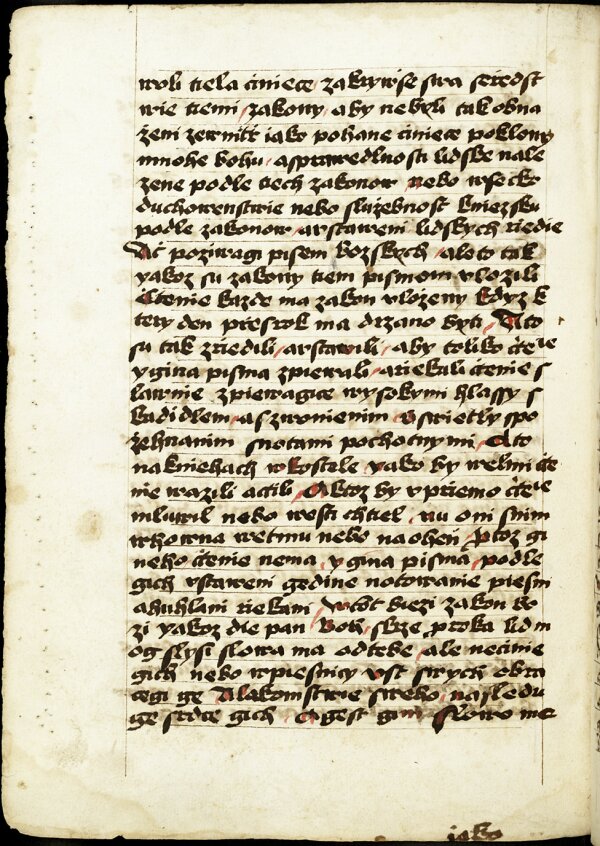 woli tiela ciniece zakrywse swa sᵉredst
wie tiemi zakony aby nebyli tak obna
zeni zewnitř iako pohane ciniece poklony
mnohe bohu a sprawedlnosti lidske nale
zene podle tiech zakonow nebo wsecko
duchowenstwie nebo sluzebnost kniezsku
podle zakonow a vstaweni lidskych wedie
Ač poziwagi pisem Bozskych ale to tak
yakoz su zakony tiem pismom vlozili
Čtenie kazde ma zakon vlozeny kdyz k
tery den přes rok ma drzano byti A to
su tak zriedili a vstawili aby toliko čte
y gina pisma zpiewali a riekali čtenie s
lawnie zpiewagice wysokymi hlassy s
kadidlem a s zwonienim v swietly spo
zehnanim s notami pochotnymi A to
na kniehach w kostele yako by welmi čte
nie wazili a ctili A ktoz by vpriemo čte
mluwil nebo westi chtiel nu oni s nim
whowna wetmu nebo na ohen Protoz gi
neho čtenie nema y gina pisma podle
gich vstaweni godine notowanie piesni
a huhlani riekani Wčot biezi zakon Bo
zi yakoz die pan Boh skrze proroka lid m
og slysi slowa ma od tebe ale necinie
gich nebo w piesnicy vst swych obra
cegi ge A lakomstwie sweho nasledu
ge srdce gich A gest gim slowo me
iako